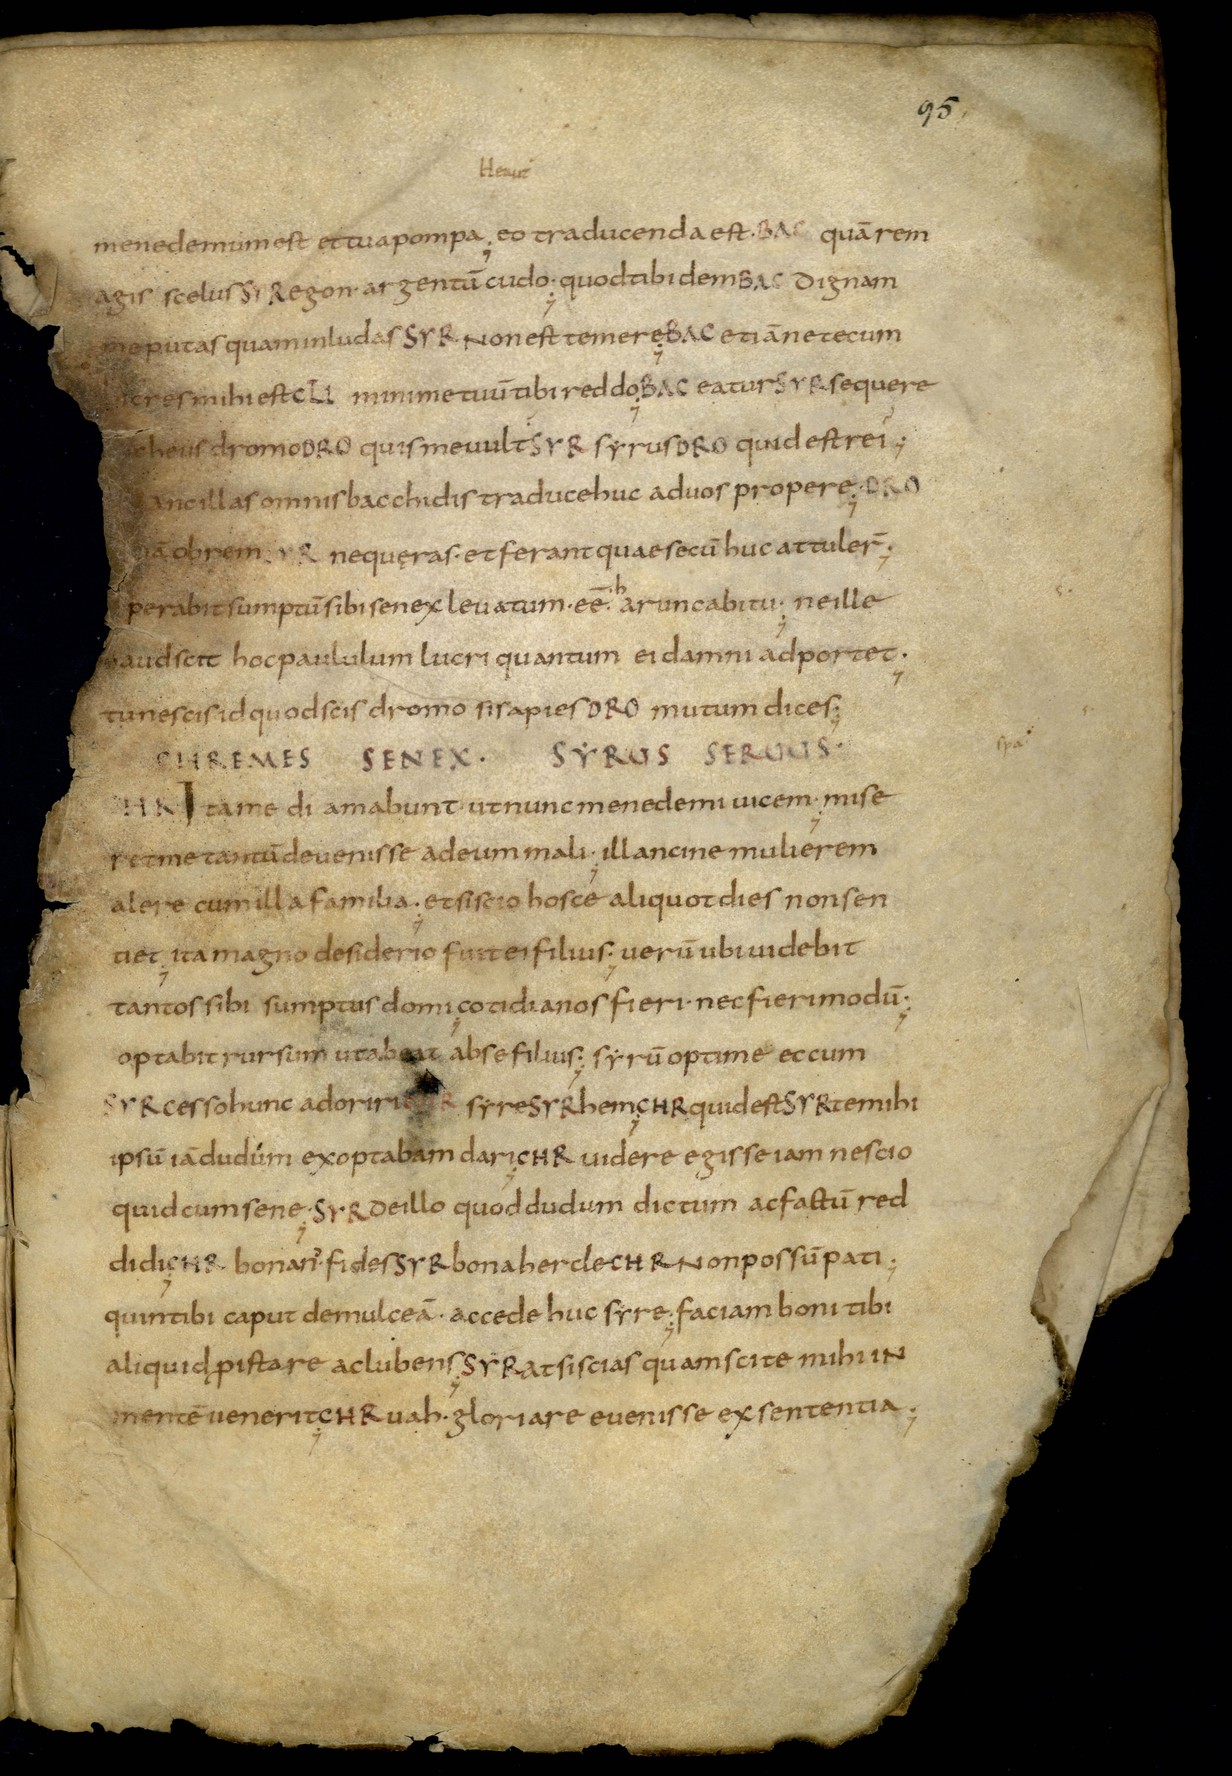 95
Heaut
menedemum est et tua pompa; eo traducenda est. BAC quā rem
agis scelus SYR egon. argentū cudo. quod tibi dem BAC Dignam
me putas quam inludas SYR Non est temere; BAC etiā ne tecum
res mihi est CLI minime tuū tibi reddo; BAC eatur SYR sequere
heus dromo DRO quis me vult SYR syrus DRO quid est rei;
ancillas omnis bacchidis traduce huc ad vos propere; DRO
obrem SYR ne queras. et ferant quae secū huc attuler̄;
perabit sumptū sibi senex levatum. eē. harunc abitu; ne ille
haud scit hoc paululum lucri quantum ei damni adportet;
tu nescis id quod scis dromo si sapies DRO mutum dices;
CHREMES SENEX. SYRUS SERUUS.
CHR Ita me di amabunt ut nunc menedemi vicem; mise
ret me tantū devenisse ad eum mali; illancine mulierem
alere cum illa familia; et si scio hosce aliquot dies non sen
tiet; ita magno desiderio fuit ei filius; verū ubi videbit
tantos sibi sumptus domi; cotidianos fieri. nec fieri modū;
optabit rursum ut abeat ab se filius; syrū optime eccum
SYR cesso hunc adoriri CHR syre SYR hem; CHR quid est SYR te mihi
ipsū iā dudum exoptabam dari; CHR videre egisse iam nescio
quid cum sene; SYR De illo quod dudum dictum ac factū red
didi; CHR bonan̄. fides SYR bona hercle CHR Non possū pati;
quin tibi caput demulceā. accede huc syre; faciam boni tibi
aliquid; p ista re ac lubens; SYR at si scias quam scite mihi in
mentē venerit; CHR vah. gloriare evenisse ex sententia;